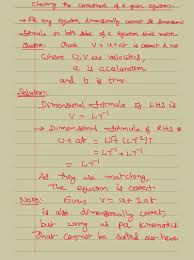 Checking the correctness of a given equation:-
→ For any equation dimensionally correct its dimensional
formula on both sides of a equation should match.
Question: Check V = u + at is correct or not
Where U, V are velocities,
a is acceleration
and t is time.
Solution:
Dimensional formula of LHS is
V = LT⁻¹
→ Dimensional formula of RHS is
U + at = LT⁻¹ (LT⁻²)T
= LT⁻¹ + LT⁻¹
= LT⁻¹
As they are matching,
The equation is correct
Note: Given V = u + 2at
is also dimensionally correct,
but wrong as per kinematics
that cannot be tested out here.